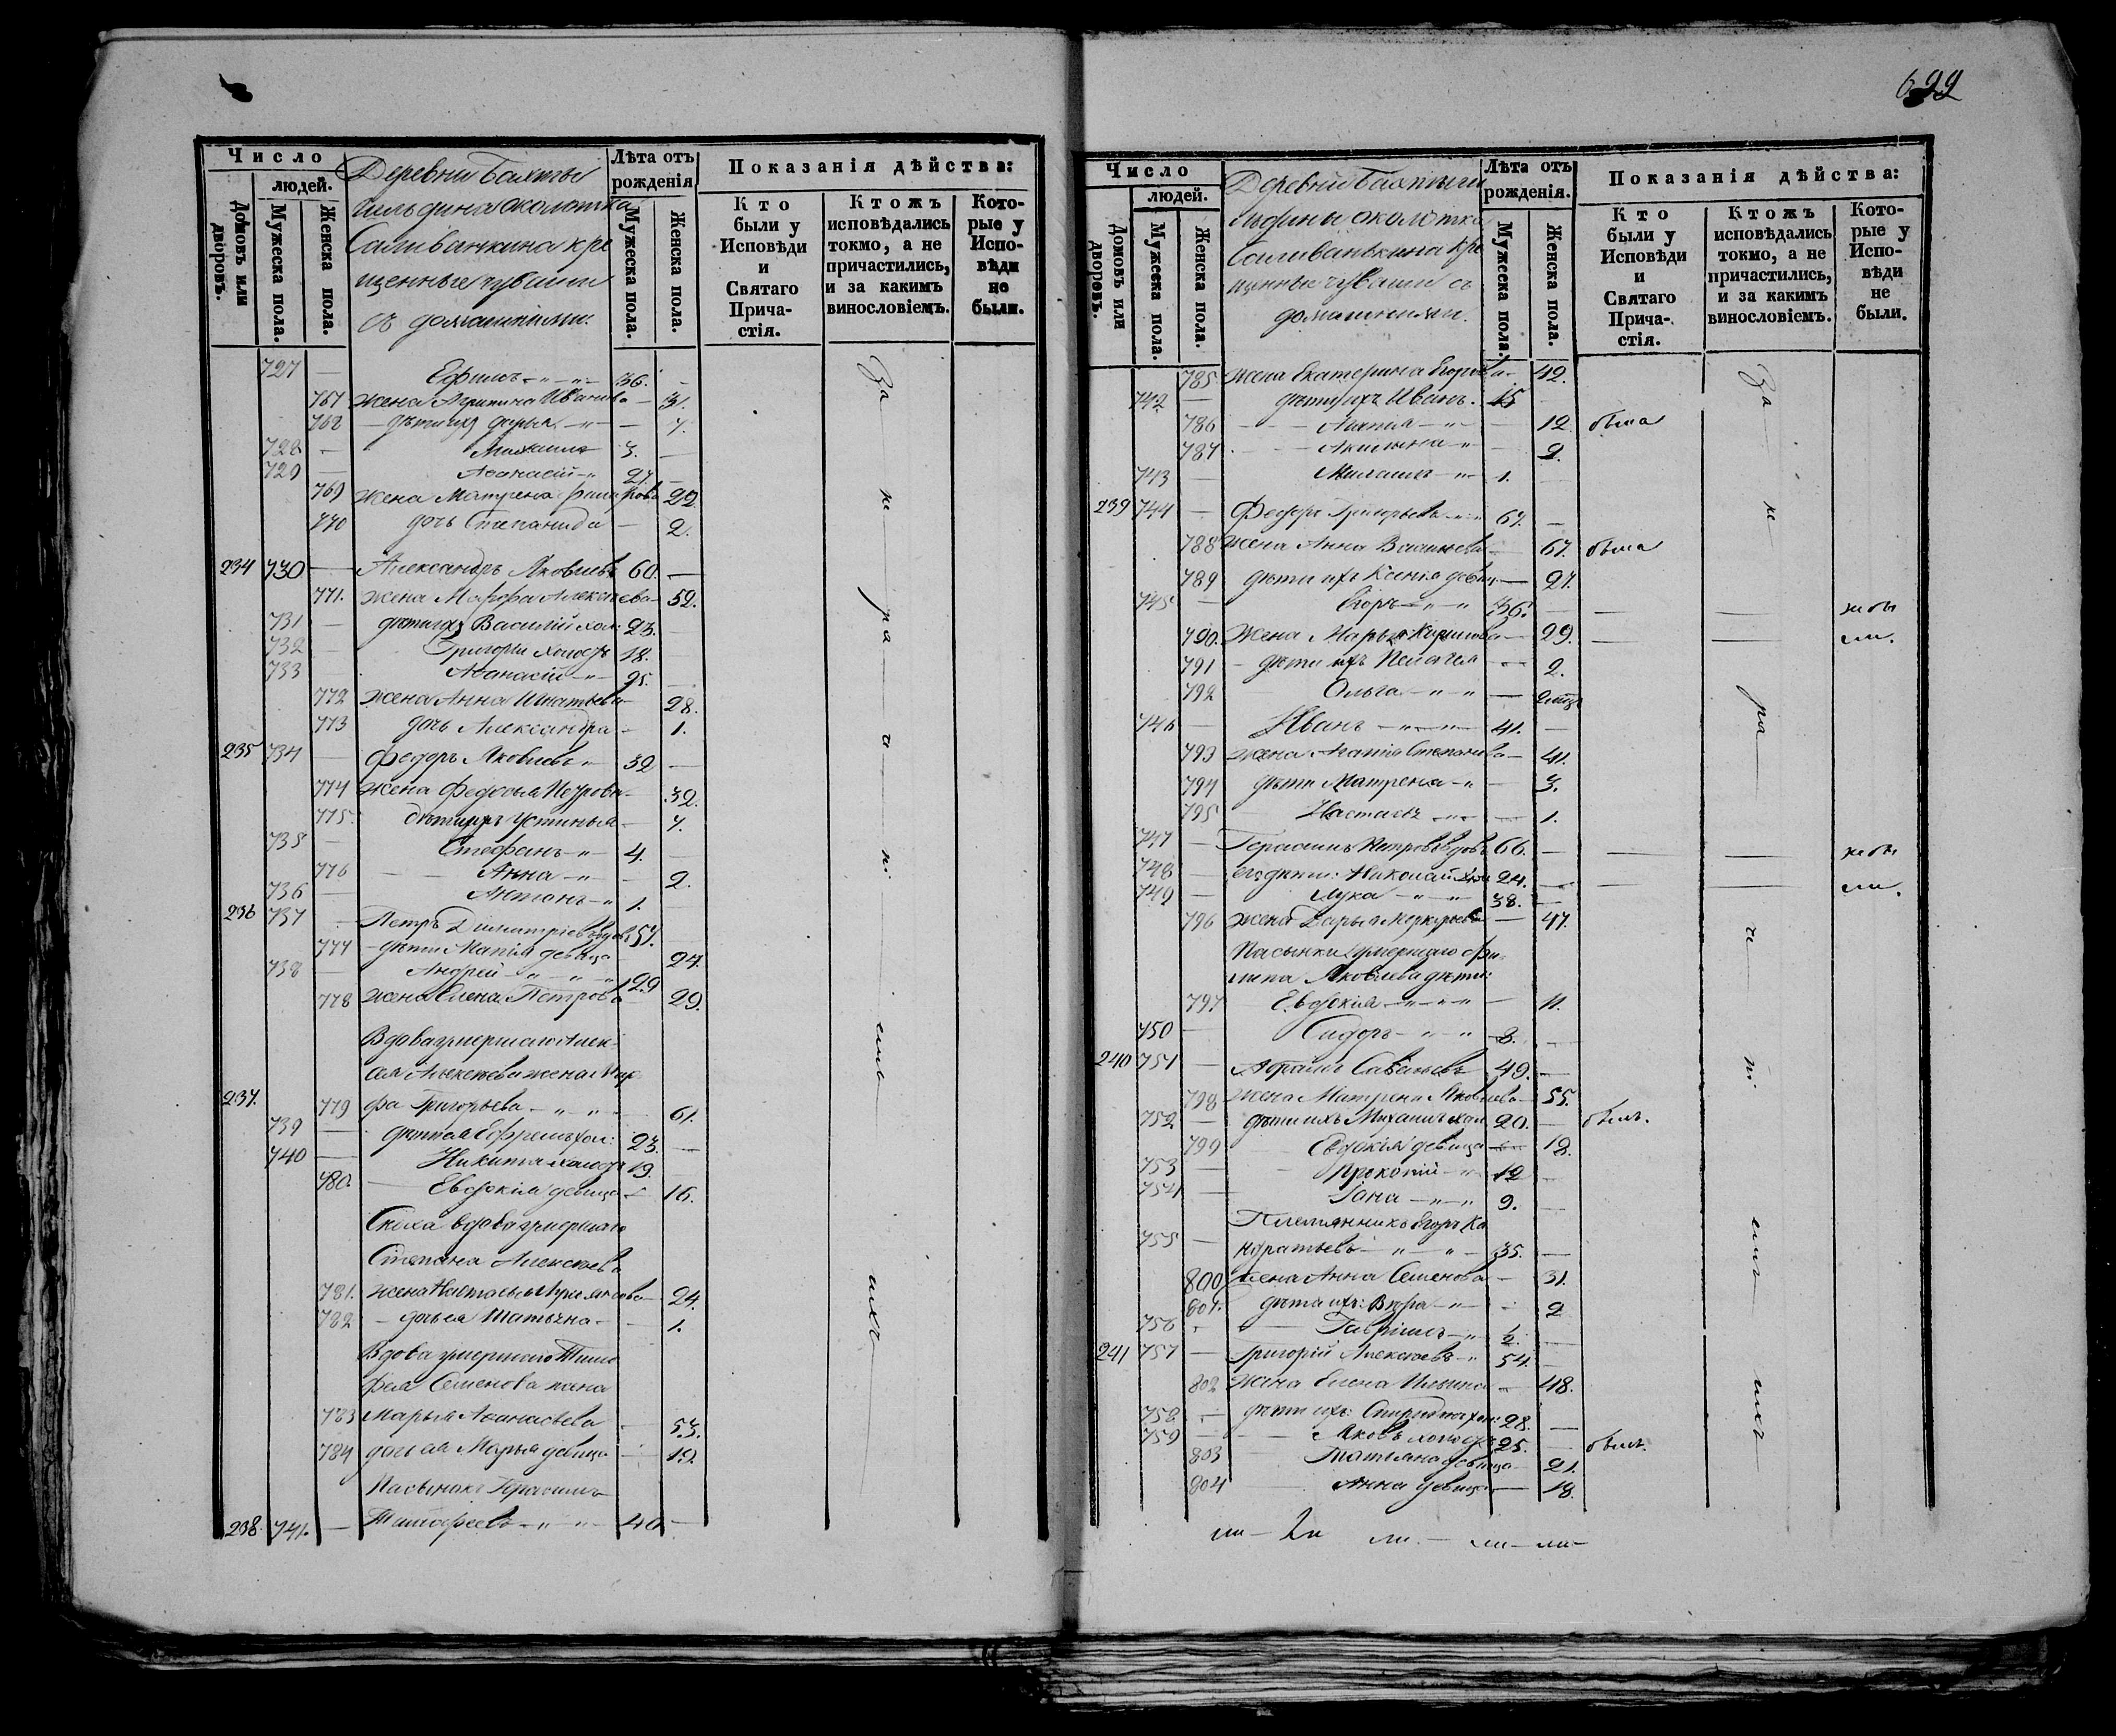 699
Число
людей.
Домовъ или дворовъ.
Мужеска пола.
Женска пола.
Деревни Бахты
гильдина околотка
Саливанкина кре
щенные чуваши
съ домашними.
Лѣта отъ рожденія
Мужеска пола.
Женска пола.
Показанія дѣйства:
Кто были у Исповѣди и Святаго Прича-стія.
Ктожъ исповѣдались токмо, а не причастились, и за какимъ винословіемъ.
Кото-рые у Испо-вѣди не были.
727 — Ефимъ 36. —
767 жена Агрипина Иванова — 31.
768 дѣти ихъ Дарья — 7.
728 — Михаилъ 3. —
729 — Афанасій 27. —
769 жена Матрена 22
770 дочь Степанида — 2.
234 730 — Александръ Яковлевъ 60. —
771. жена Марфа Алексѣева — 52.
731 — дѣти ихъ Василій хол: 23. —
732 — Григорій холостъ 18. —
733 Афанасій 25. —
772 жена Анна Игнатьева 28.
773 дочь Александра — 1.
235 734 — Федоръ Яковлевъ 32 —
774 жена Федосья Петрова — 32.
775. дѣти ихъ Устинья — 7.
735 — Стефанъ 4. —
776 — Анна — 2.
736 — Антонъ 1.
236 737 — Петръ Димитріевъ вдовъ 57.
777 — дѣти Марія девица 24.
738 — Андрей 29
778 жена Елена Петрова 29.
Вдова умершаго Алек-
сея Алексѣева жена Мар
237. 779 фа Григорьева — 61.
739 — дѣти ея Ефремъ хол: 23. —
740 — Никита холостъ 19. —
780. — Евдокія девица — 16.
Сноха вдова умершаго
Степана Алексѣева
781. жена Наталья — 24.
782 — дочь ея Татьяна — 1.
Вдова умершаго Тимо
фея Семенова жена
783 Марья Афанасьева 53.
784 дочь ея Марья девица — 19.
Пасынокъ Герасимъ
238. 741. — Тимофеевъ 40 —
За не ра
Число
людей.
Домовъ или дворовъ.
Мужеска пола.
Женска пола.
Деревни Бахтыги
льдины околотка
Саливанькина кре
щенные чуваши съ
домашними.
Лѣта отъ рожденія.
Мужеска пола.
Женска пола.
Показанія дѣйства:
Кто были у Исповѣди и Святаго Прича-стія.
Ктожъ исповѣдались токмо, а не причастились, и за какимъ винословіемъ.
Кото-рые у Испо-вѣди не были.
785 жена Екатерина Егорова — 42.
742 — дѣти ихъ Иванъ. 15 —
786 — — 12. была
787 — Акилина — 9.
743 — 1. —
239 744 — Федоръ Григорьевъ 67. —
788 жена Анна Васильева — 67. была
789 дѣти ихъ Ксенія девица — 27.
745 — Егоръ 36. — — — не бы
790. жена Марья — 29. — — ли.
791 — дѣти ихъ Пелагея — 2.
792 Ольга — 2 мѣся
746 — Иванъ 41. —
793 жена Агафія Степанова — 41.
794 дѣти Матрена — 3.
795 Настасъ — 1.
747 — Герасимъ Петровъ вдовъ 66. — — — не бы
748 — его дѣти: Николай хол 24. — — — ли.
749 — Лука 38. —
796 жена Дарья — 47.
Пасынки умершаго Фи-
липа Яковлева дѣти:
797 Евдокія — 11.
750 — Сидоръ 8. —
240 751 — Савельевъ 49. —
798 жена Матрена Яковлева — 55.
752 — дѣти ихъ Михаилъ хол 20. — былъ.
799 Евдокія девица — 18.
753 — Прокопій 12 —
754 — 9. —
Племянникъ Егоръ Ко
755 — ндратьевъ 35. —
800 жена Анна Семенова — 31.
801. дѣти ихъ: Вѣра — 2
756 — Гаврилъ 6. —
241 757 — Григорій Алексѣевъ 54. —
802 жена Елена Ильина — 48.
758 — дѣти ихъ: Спиридонъ хол: 28. —
759 — Яковъ холостъ 25. — былъ.
803 Татьяна девица — 21.
804 Анна девица — 18.
За не ра